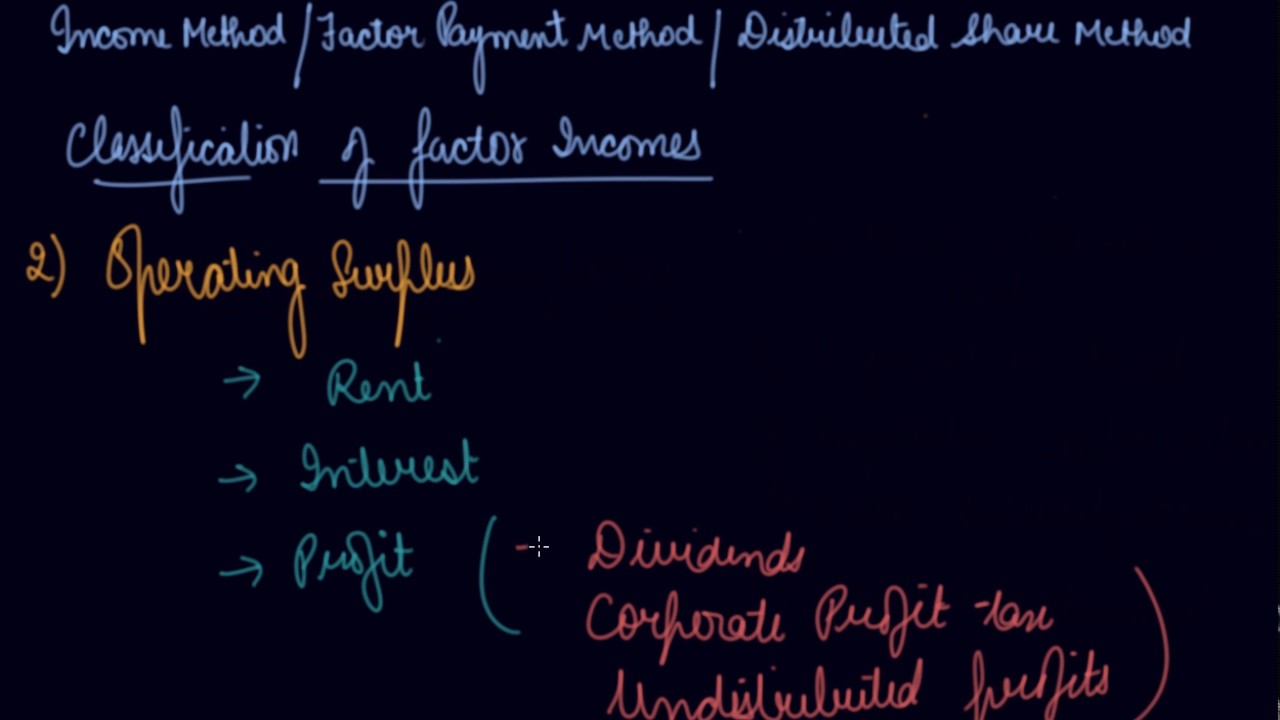 Income Method / Factor Payment Method / Distributed Share Method
Classification of factor Incomes
2) Operating Surplus
→ Rent
→ Interest
→ Profit ( - Dividends
Corporate Profit tax
Undistributed profits )